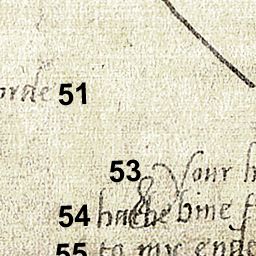 orde 51
53 Your h
54 hathe bine f
55 to my ende